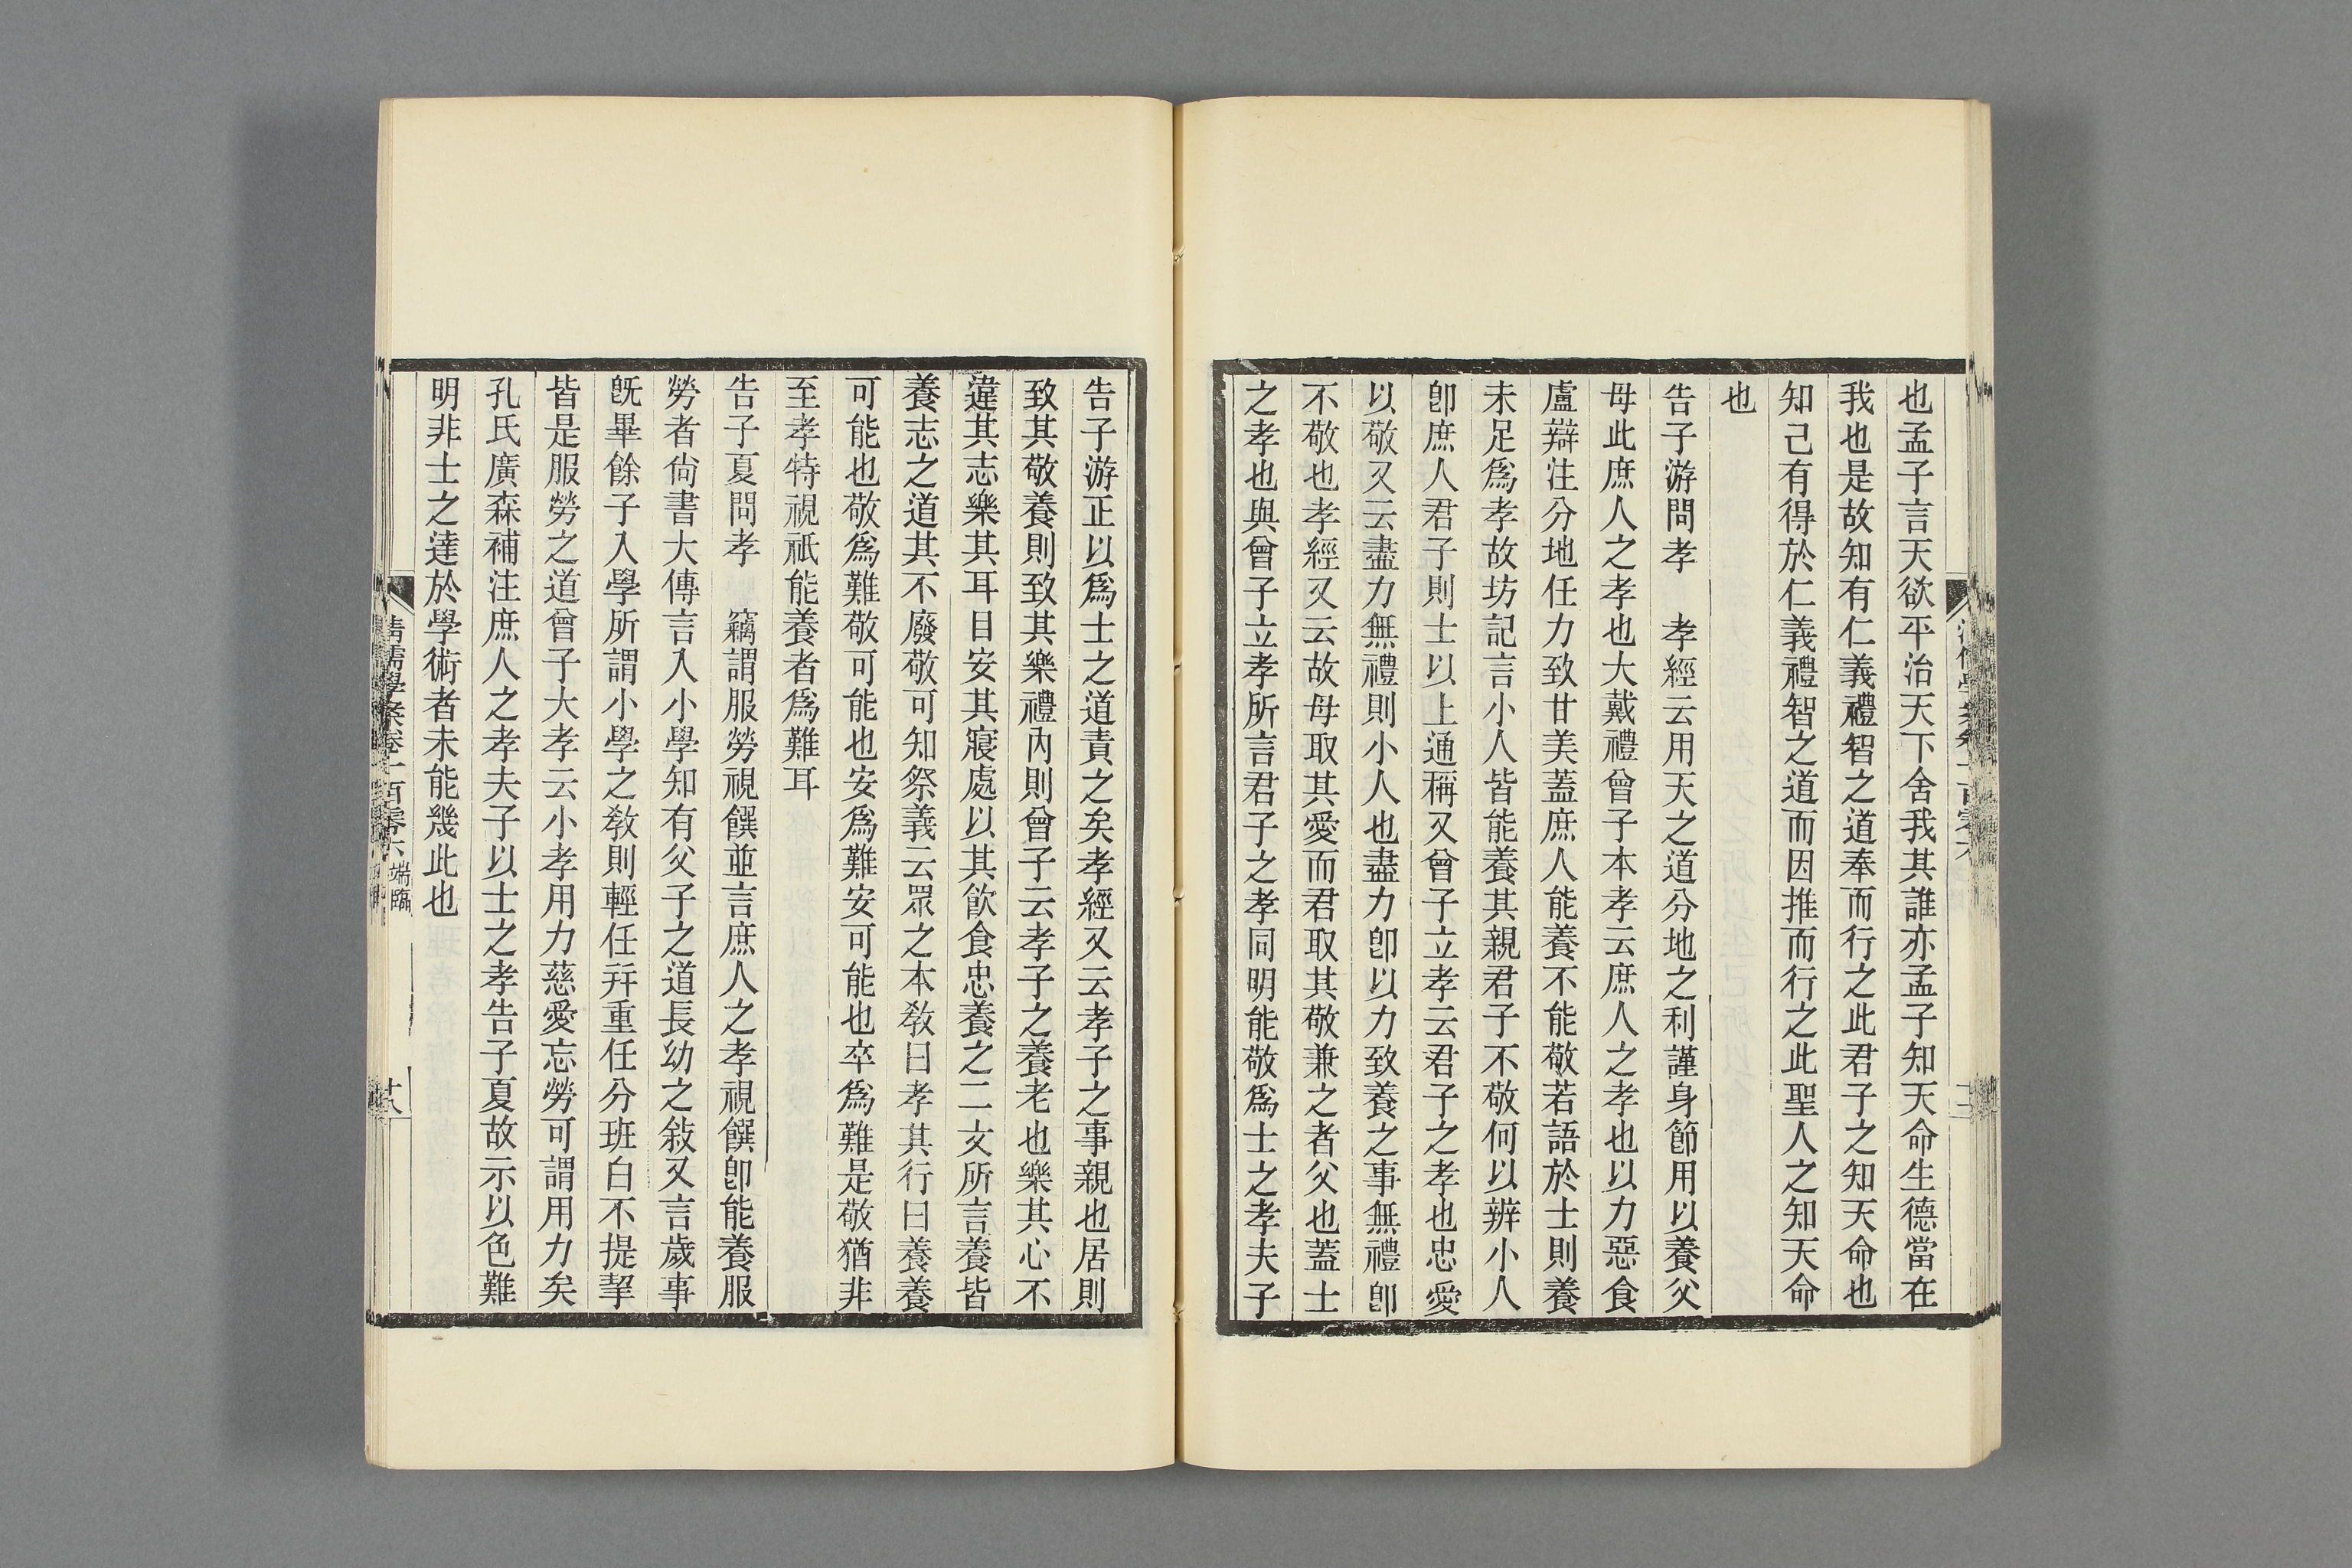 也孟子言天欲平治天下舍我其誰亦孟子知天命生德當在
我也是故知有仁義禮智之道奉而行之此君子之知天命也
知己有得於仁義禮智之道而因推而行之此聖人之知天命
也
告子游問孝　孝經云用天之道分地之利謹身節用以養父
母此庶人之孝也大戴禮曾子本孝云庶人之孝也以力惡食
盧辯注分地任力致甘美蓋庶人能養不能敬若語於士則養
未足爲孝故坊記言小人皆能養其親君子不敬何以辨小人
卽庶人君子則士以上通稱又曾子立孝云君子之孝也忠愛
以敬又云盡力無禮則小人也盡力卽以力致養之事無禮卽
不敬也孝經又云故母取其愛而君取其敬兼之者父也蓋士
之孝也與曾子立孝所言君子之孝同明能敬爲士之孝夫子
告子游正以爲士之道責之矣孝經又云孝子之事親也居則
致其敬養則致其樂禮內則曾子云孝子之養老也樂其心不
違其志樂其耳目安其寢處以其飮食忠養之二文所言養皆
養志之道其不廢敬可知祭義云眾之本敎曰孝其行曰養養
可能也敬爲難敬可能也安爲難安可能也卒爲難是敬猶非
至孝特視祇能養者爲難耳
告子夏問孝　竊謂服勞視饌並言庶人之孝視饌卽能養服
勞者尙書大傳言入小學知有父子之道長幼之敍又言歲事
旣畢餘子入學所謂小學之敎則輕任幷重任分班白不提挈
皆是服勞之道曾子大孝云小孝用力慈愛忘勞可謂用力矣
孔氏廣森補注庶人之孝夫子以士之孝告子夏故示以色難
明非士之達於學術者未能幾此也
清儒學案卷一百零六　端臨
十八